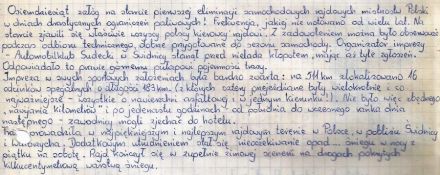 Osiemdziesiąt załóg na starcie pierwszej eliminacji samochodowych rajdowych mistrzostw Polski
w dniach drastycznych ograniczeń paliwowych! Frekwencja, jakiej nie notowano od wielu lat. Na
starcie zjawili się właściwie wszyscy polscy kierowcy rajdowi. Z zadowoleniem można było obserwować
podczas odbioru technicznego, dobrze przygotowane do sezonu samochody. Organizator imprezy
- Automobilklub Sudecki w Świdnicy stanął przed nielada kłopotem, mając aż tyle zgłoszeń.
Odpowiadało to prawie górnemu pułapowi pojemności trasy.
Impreza w swych sportowych założeniach była bardzo zwarta: na 511 km zlokalizowano 16
odcinków specjalnych o długości 183 km (z których cztery przejeżdżane były wielokrotnie i co
najważniejsze - wszystkie o nawierzchni asfaltowej i w jednym kierunku!). Nie było więc zbędnego
"nawijania kilometrów" i po jedenastu godzinach - od południa do wczesnego ranka dnia
następnego - zawodnicy mogli zjechać do hotelu.
Trasa prowadziła w najpiękniejszym i najlepszym rajdowym terenie w Polsce, w pobliżu Świdnicy
i Wałbrzycha. Dodatkowym utrudnieniem stał się nieoczekiwanie opad... śniegu w nocy z
piątku na sobotę. Rajd kończył się w zupełnie zimowej scenerii na drogach pokrytych
kilkucentymetrową warstwą śniegu.